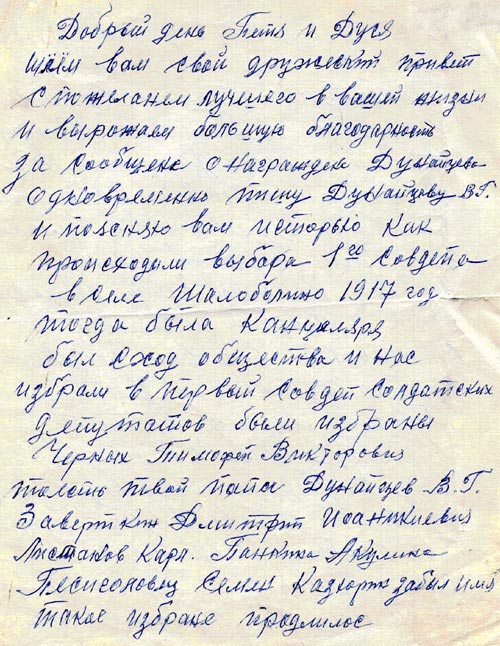 Добрый день Петя и Дуся
шлём вам свой дружеский привет
с пожеланем лучшего в вашей жизни
и вырожаем большую благодарность
за сообщене о награждене Дунайцева
одновременно пишу Дунайцеву В.Г.
и поясняю вам историю как
происходили выбора 1го совдепа
в селе Шалоболино 1917 год
тогда была Канцеляря
был сход общества и нас
избрали в первый совдеп солдатских
депутатов были избраны
Черных Тимофей Викторович
толесть твой папа Дунайцев В.Г.
Заверткин Дмитрий Иоаникиевич
Карл. Панкина Акулина
Семен забыл имя
такое избране продлилос